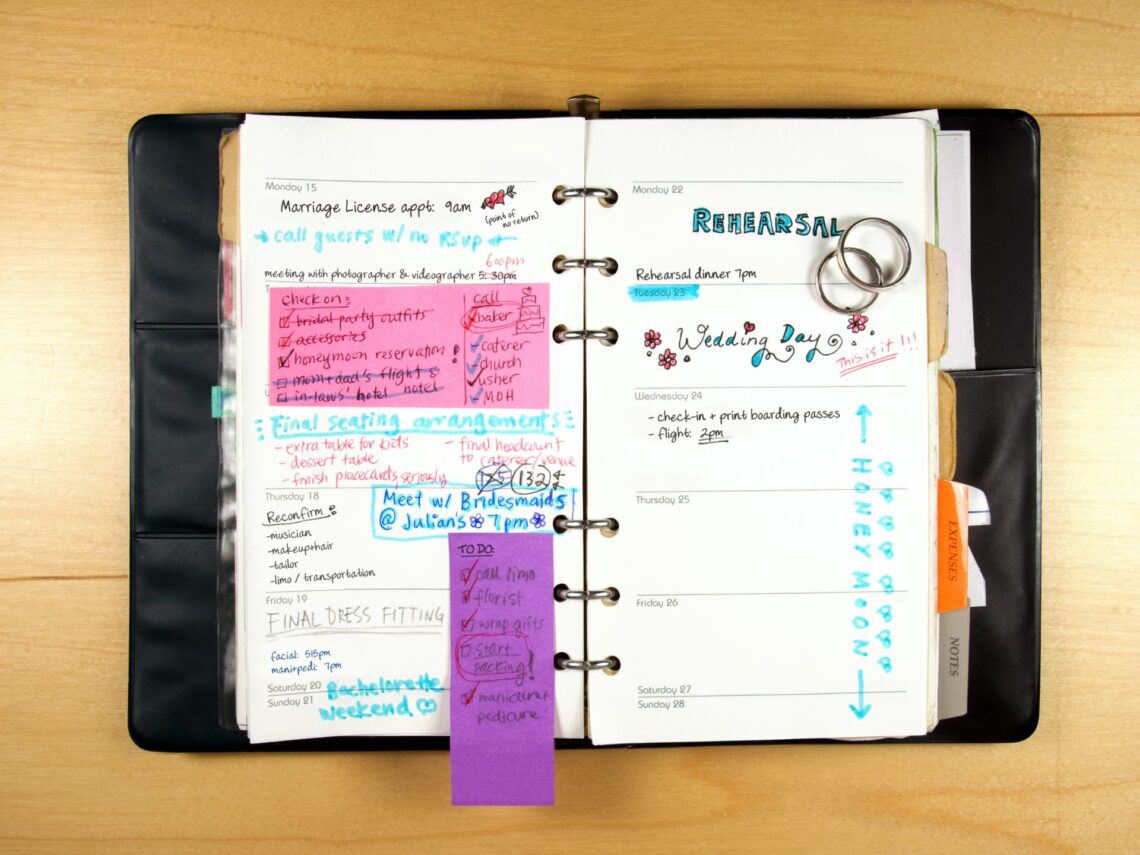 Monday 15
Marriage License appt: 9am
(point of
no return)
call guests w/ no RSVP
6:00pm
meeting with photographer & videographer 5:30pm
check on:
bridal party outfits
accessories
honeymoon reservation!
mom+dad's flight &
in-laws' hotel
call
baker
caterer
church
usher
MOH
Final seating arrangements
- extra table for kids
- dessert table
- finish placecards, seriously
- final headcount
to caterer/venue
132
Thursday 18
Reconfirm:
-musician
-makeup+hair
-tailor
-limo / transportation
Meet w/ Bridesmaids
@ Julian's 7pm
Friday 19
FINAL DRESS FITTING
facial: 515pm
mani+pedi: 7pm
Saturday 20
Sunday 21
Bachelorette
Weekend
TO DO:
call limo
florist
wrap gifts
start
packing!
manicure+
pedicure
Monday 22
REHEARSAL
Rehearsal dinner 7pm
Tuesday 23
Wedding Day
This is it!!!
Wednesday 24
- check-in + print boarding passes
- flight: 2pm
HONEY MOON
Thursday 25
Friday 26
Saturday 27
Sunday 28
EXPENSES
NOTES